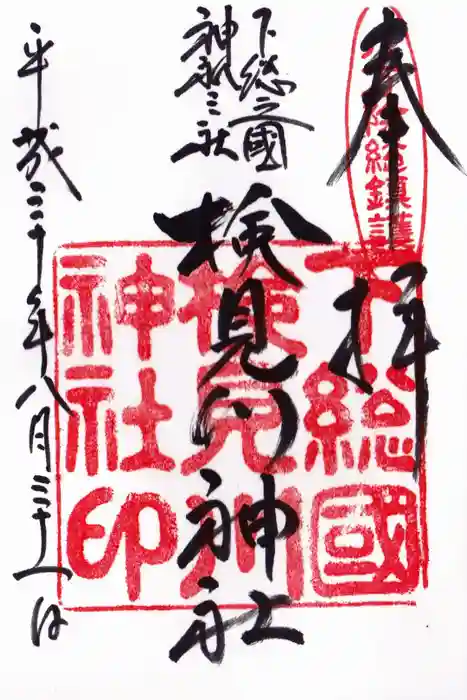 奉拝
総鎮護
下総之國
神祇三社
検見川神社
平成三十年八月三十一日
下総國
検見川
神社印